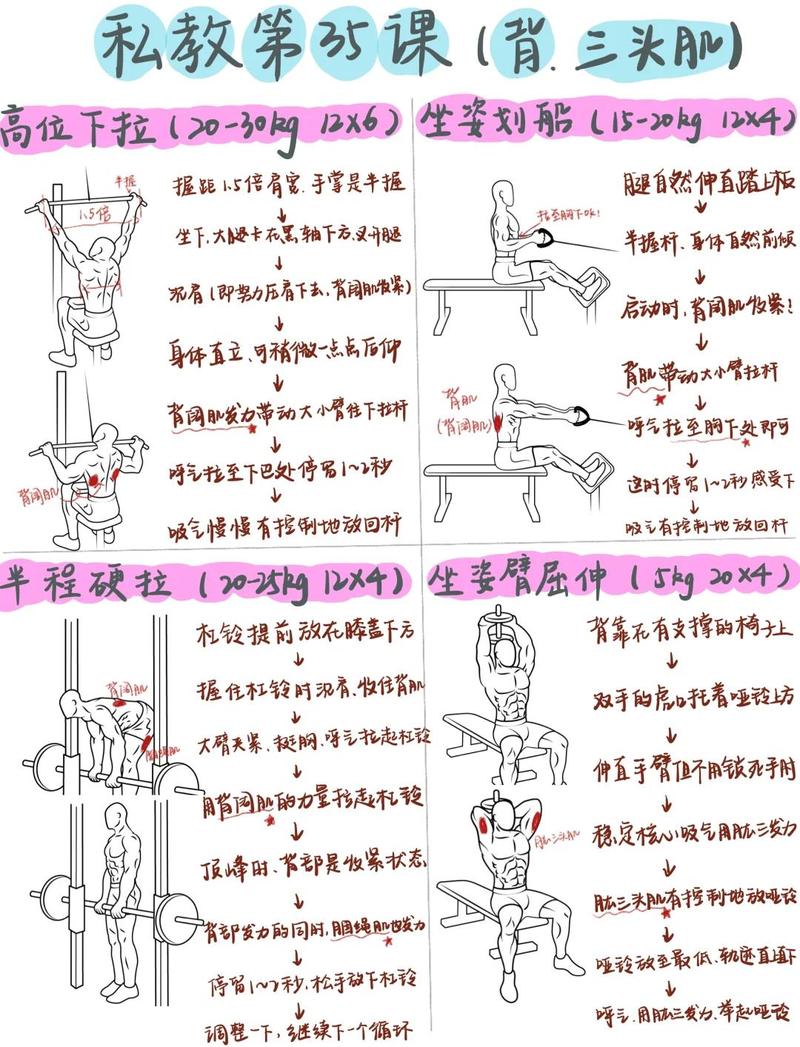 私教第35课(背、三头肌)
高位下拉(20-30kg 12×6)
半握
1.5倍
背阔肌
握距1.5倍肩宽、手掌是半握
↓
坐下,大腿卡在黑轴下方,叉开腿
↓
沉肩(即努力压肩下去,背阔肌收紧)
↓
身体直立、可稍微一点点后仰
↓
背阔肌发力带动大小臂往下拉杆
↓
呼气拉至下巴处停留1~2秒
↓
吸气慢慢有控制地放回杆
坐姿划船(15-20kg 12×4)
拉至胸下OK!
背肌
(背阔肌)
腿自然伸直踏上板
↓
半握杆、身体自然前倾
↓
启动时,背阔肌收紧!
↓
背肌带动大小臂拉杆
↓
呼气拉至胸下处即可
↓
这时停留1~2秒感受下
↓
吸气有控制地放回杆
半程硬拉(20-25kg 12×4)
背阔肌
腘绳肌
杠铃提前放在膝盖下方
↓
握住杠铃时沉肩、收住背肌
↓
大臂夹紧、挺胸、呼气拉起杠铃
↓
用背阔肌的力量拉起杠铃
↓
顶峰时、背部是收紧状态
↓
背部发力的同时,腘绳肌也发力
↓
停留1~2秒,松手放下杠铃
↓
调整一下,继续下一个循环
坐姿臂屈伸(5kg 20×4)
肱三头肌
背靠在有支撑的椅子上
↓
双手的虎口托着哑铃上方
↓
伸直手臂但不用锁死手肘
↓
稳定核心吸气用肱三发力
↓
肱三头肌有控制地放哑铃
↓
哑铃放至最低、轨迹直上直下
↓
呼气、用肱三发力、举起哑铃